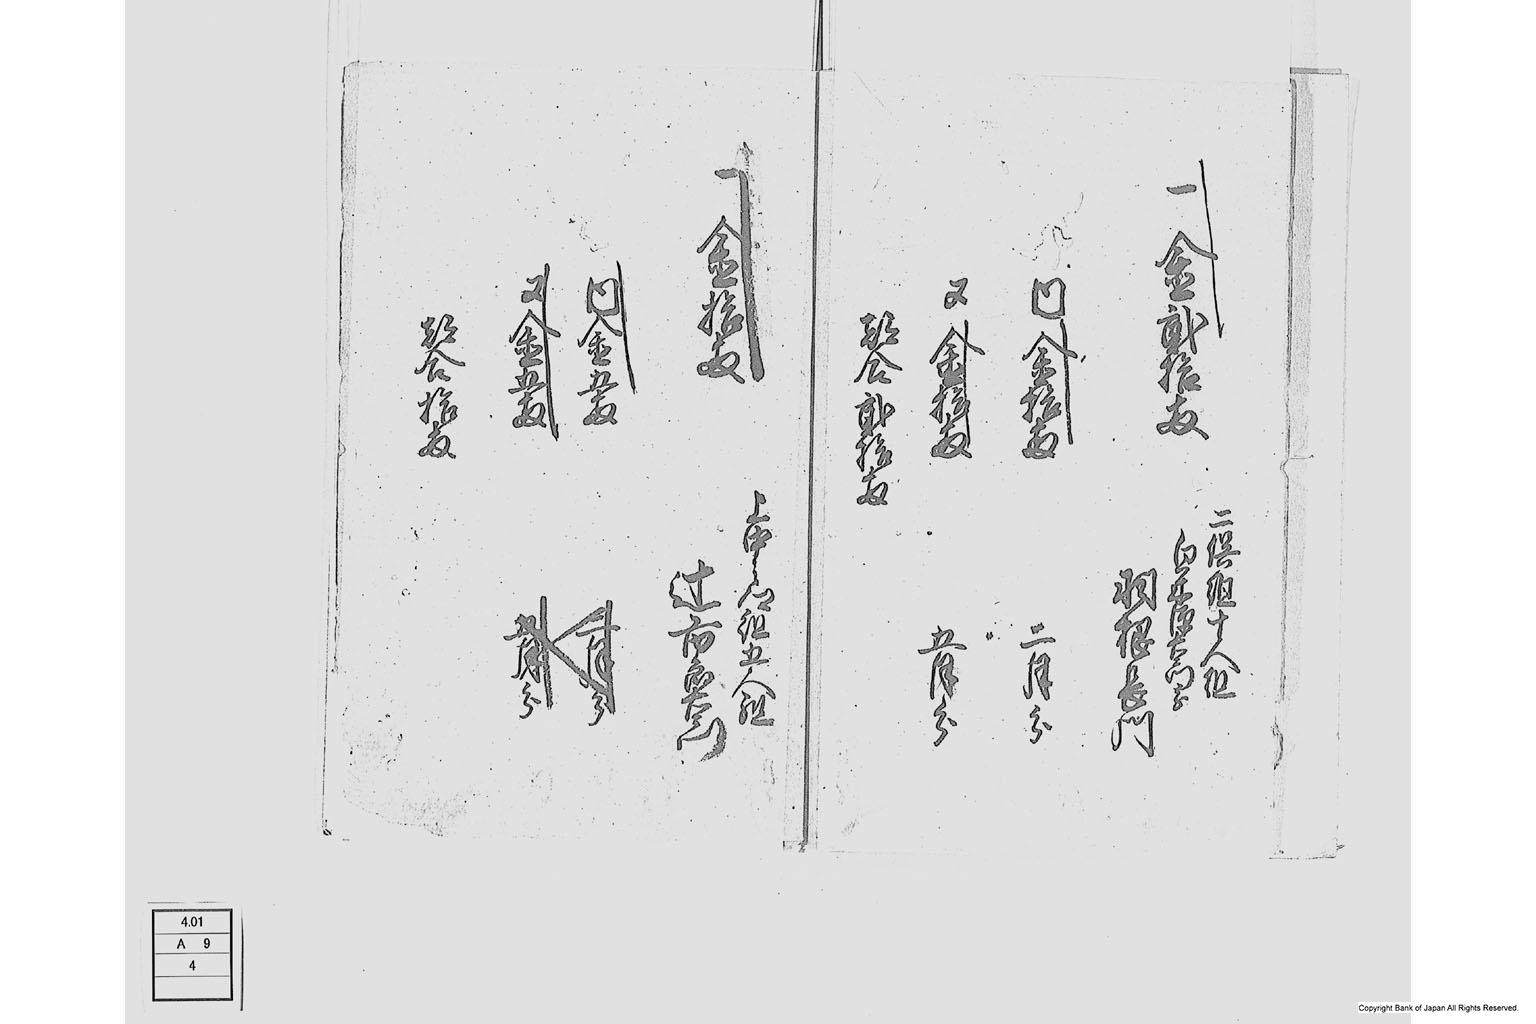 一 金弐拾両
二俣組十人組
羽根長門
内 金拾両
二月分
又 金拾両
五月分
都合弐拾両
一 金拾両
組五人組
辻市郎右衛門
内 金五両
二月分
又 金五両
五月分
都合拾両
4.01
A 9
4
Copyright Bank of Japan All Rights Reserved.